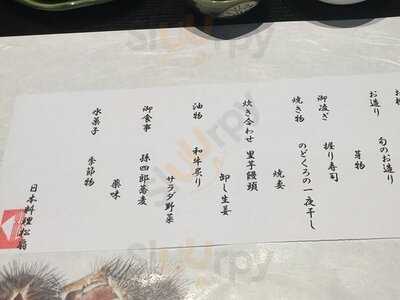 お造り
旬のお造り
芽物
御凌ぎ
握り寿司
焼き物
のどくろの一夜干し
焼妻
炊き合わせ
里芋饅頭
卸し生姜
油物
和牛炙り
サラダ野菜
御食事
孫四郎蕎麦
薬味
水菓子
季節物
日本料理 松廊
Sluurpy